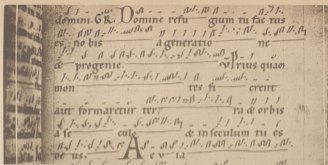 domini. GR. Domine refu gium tu fac tus
es no bis a generatio ne
& progenie. V. Prius quam
mon tes fi erent
aut formaretur ter ra & orbis
a se culo & in seculum tu es
de us. A e v ia